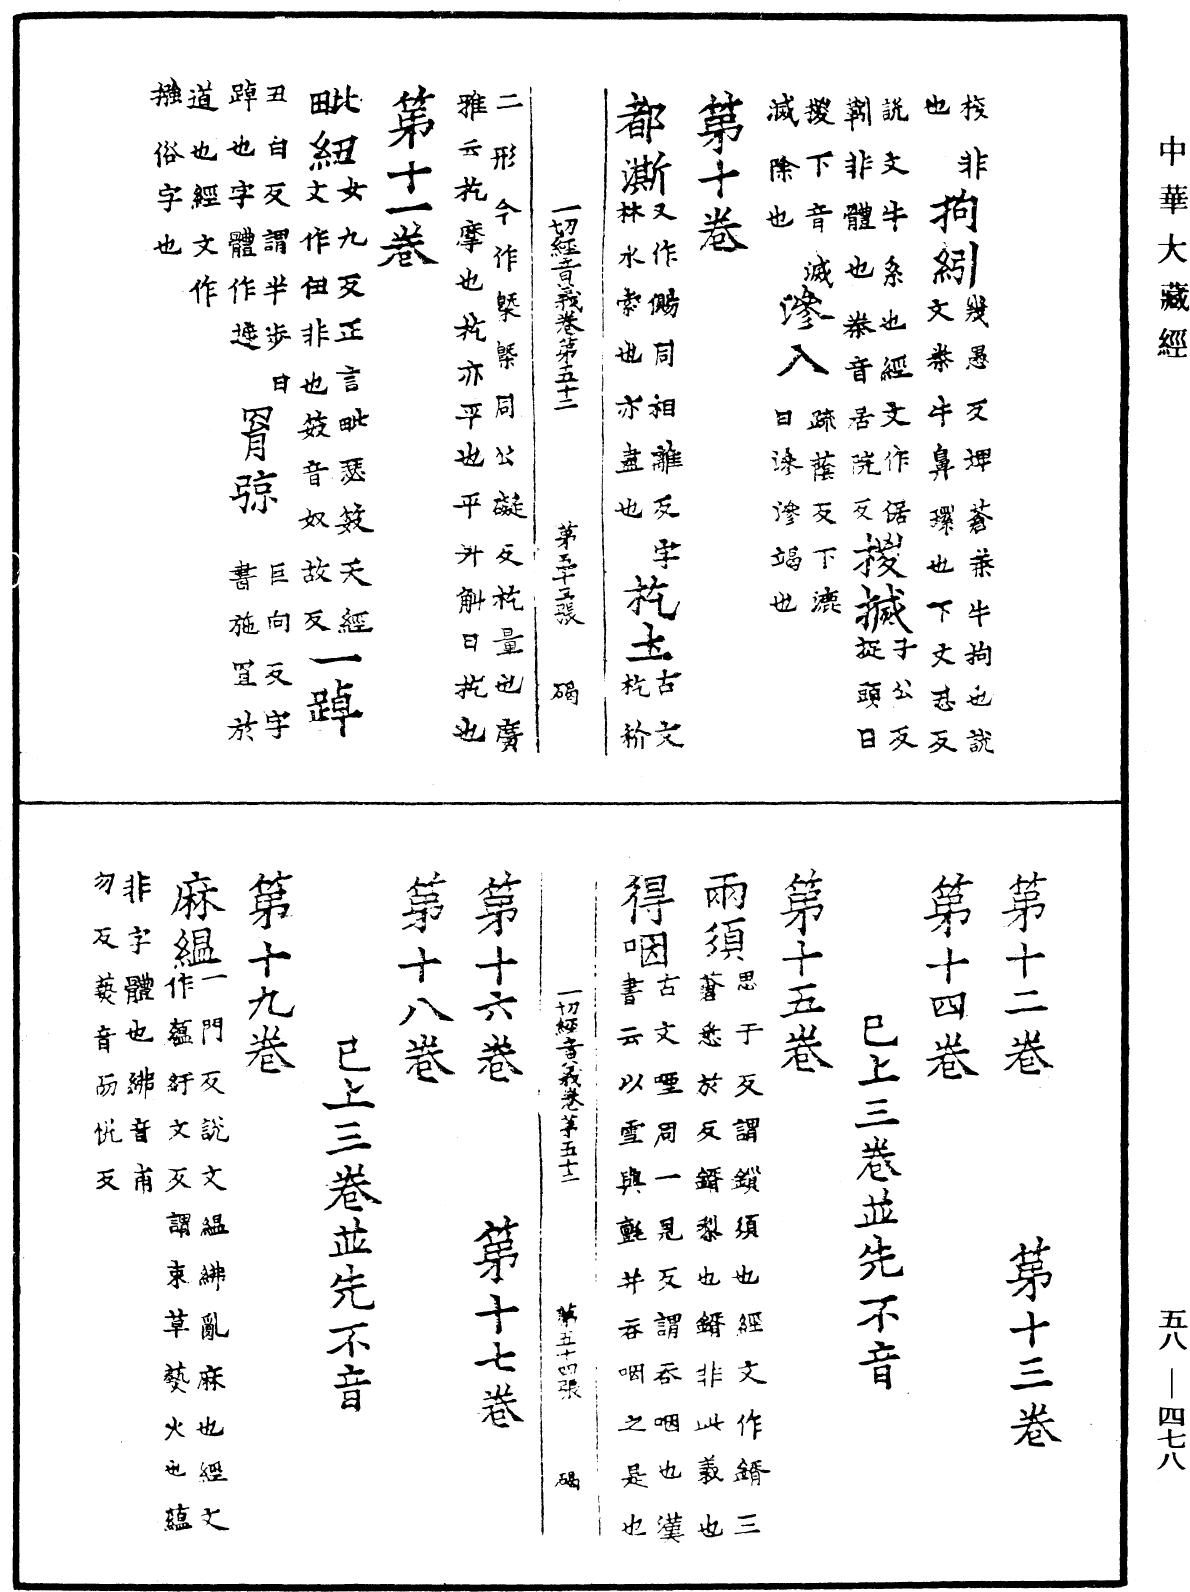 中華大藏經
栓非
也
拘紖
㡬愚反埤蒼桊牛拘也說
文桊牛鼻環也下丈忍反
說文牛系也經文作倨
靷非體也桊音居院反
㨑搣
子公反
捉頭曰
㨑下音滅
滅除也
滲入
疏蔭反下漉
曰滲滲竭也
第十卷
都澌
又作儩同相離反字
林水索也亦盡也
杚土
古文
杚扴
一切經音義卷第五十二
第五十三張
碣
二形今作槩槩同公礙反杚量也廣
雅云杚摩也杚亦平也平斗斛曰杚也
第十一卷
毗紐
女九反正言毗瑟笯天經
文作伹非也笯音奴故反
一踔
丑白反謂半步曰
踔也字體作逴
罥弶
巨向反字
書施罝於
道也經文作
摾俗字也
第十二卷
第十三卷
第十四卷
已上三卷並先不音
第十五卷
兩須
思于反謂鎖須也經文作鐕三
蒼悉於反鐕梨也鐕非此義也
得咽
古文㗲同一見反謂吞咽也漢
書云以雪與氈并吞咽之是也
一切經音義卷第五十二
第五十四張
碣
第十六卷
第十七卷
第十八卷
已上三卷並先不音
第十九卷
麻緼
一門反說文緼紼亂麻也經文
作蘊紆文反謂束草爇火也蘊
非字體也紼音甫
勿反爇音而悅反
五八—四七八